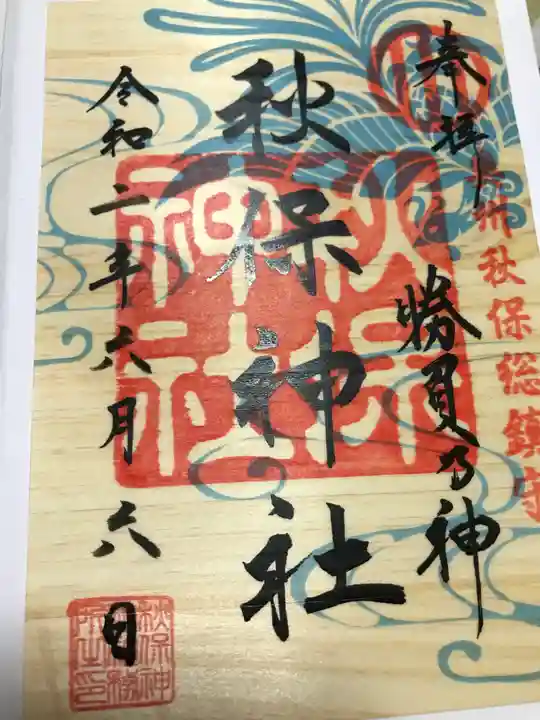 奉拝
州秋保総鎮守
勝負乃神
秋保神社
秋保神社
令和二年六月六日
秋保神